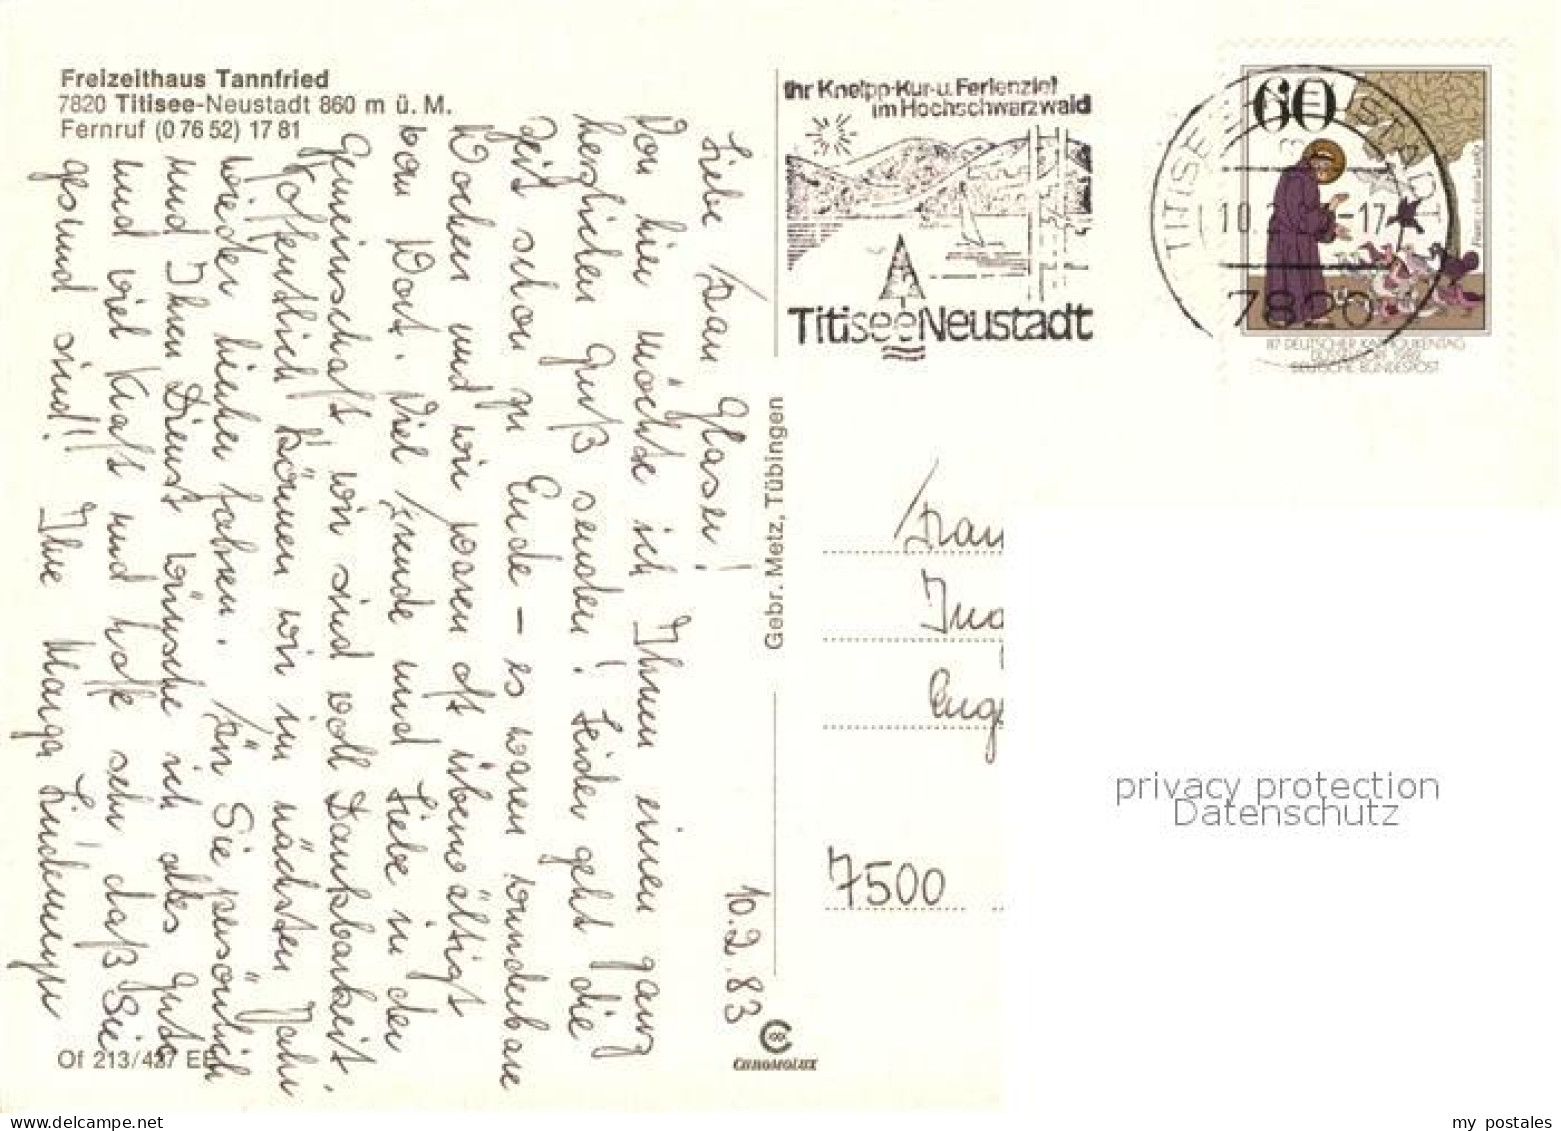 Freizeithaus Tannfried
7820 Titisee-Neustadt 860 m ü. M.
Fernruf (0 76 52) 17 81
10.2.83
Liebe Frau Glaser!
Von hier möchte ich Ihnen einen ganz
herzlichen Gruß senden! Leider geht die
Zeit schon zu Ende – es waren wunderbare
Wochen und wir waren oft überwältigt
vom Wort. Viel Freude und Liebe in der
Gemeinschaft, wir sind voll Dankbarkeit.
Hoffentlich können wir im nächsten Jahr
wieder hierher fahren. Für Sie persönlich
und Ihren Dienst wünsche ich alles Gute
und viel Kraft und hoffe sehr daß Sie
gesund sind!! Ihre Marga
Of 213/427 EE
Gebr. Metz, Tübingen
CHROMOLUX
Ihr Kneipp-Kur-u. Ferienziel
im Hochschwarzwald
TitiseeNeustadt
TITISE STADT
10.2 -17
7820
60
87. DEUTSCHER KATHOLIKENTAG
DÜSSELDORF 1982
DEUTSCHE BUNDESPOST
Frau
7500
privacy protection
Datenschutz
my postales